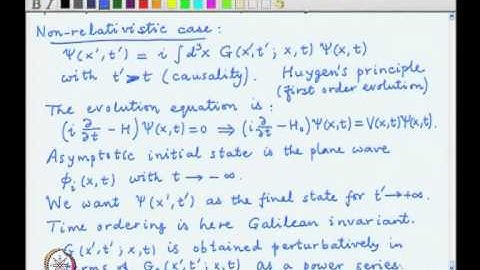 Non-relativistic case:
Ψ(x',t') = i ∫d³x G(x',t'; x,t) Ψ(x,t)
with t' > t (causality). Huygen's principle
(first order evolution)
The evolution equation is :
(i ∂/∂t - H) Ψ(x,t) = 0 ⇒ (i ∂/∂t - H₀) Ψ(x,t) = V(x,t)Ψ(x,t).
Asymptotic initial state is the plane wave
ϕᵢ(x,t) with t → -∞.
We want Ψ(x',t') as the final state for t' → +∞.
Time ordering is here Galilean invariant.
G(x',t'; x,t) is obtained perturbatively in
terms of G₀(x',t'; x,t) as a power series.